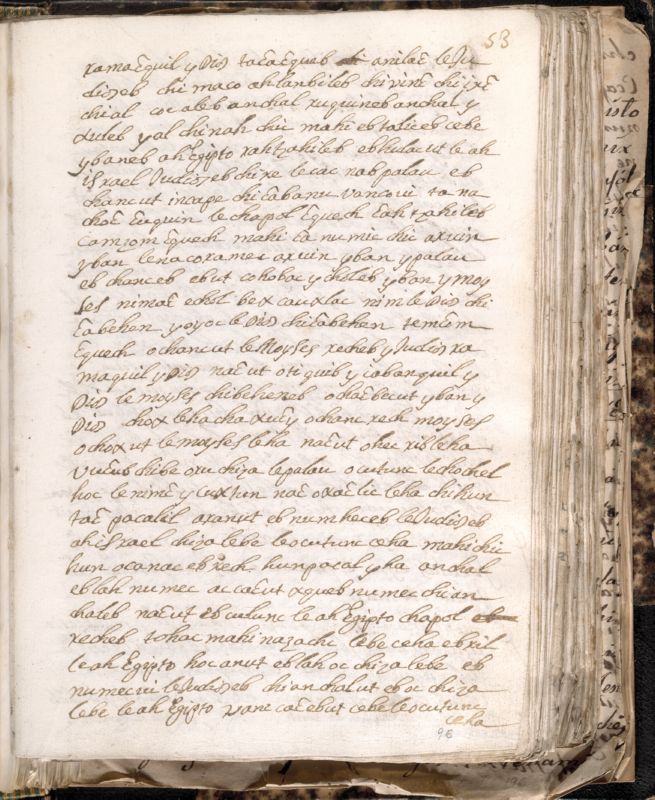 53
ramac̃quil y Dios tacac̃queb anilac̃ le Ju
dioseb chi maco ahlanbileb chi virec̃ chi ixc̃
chi al coc aleb anchal ruquineb anchal y
xuleb y al chi nah chic mahi eb talic eb cebe
y baneb ah Egipto rahtzahileb eb hulac ut le ah
israel Judioseb chire le cac nab palau eb
chanc ut incape chi cabanu vancovi ta na
choc̃ caquin le chapol c̃quech c̃ahtzahileb
camzom c̃quech mahi ca numic chic axuin
yban lenacoxamec axuin yban y palau
eb chanceb eb ut cohobac y choleb yban y moy
ses nimac̃ echol bex cauxlac nim le Dios chi
c̃abehen y oyoc le Dios chi c̃abehen temc̃m
c̃quech ochanc ut le Moyses recheb y Judios ra
maquil y Dios nac̃ ut oti quib y cabanquil y
Dios le moyses chi beheneb ochac̃bec ut yban y
Dios chox lehacha xuc̃y ochanc rech moyses
ochox ut le moyses leha nac̃ ut ohec xibleha
vucub chi be oxu chiza le palau ocutunc le chochel
hoc le nimc̃ y cuxtun nac̃ oxac̃lic leha chi hun
tac̃ pacalil axanut eb numheceb le Judioseb
ah israel chiza le be leocutunc ceha mahi chic
hun oconac eb rech hunpacal y ha anchal
eb lah numec ac cac̃ut xqueb numec chi an
chaleb nac̃ut eb culunc le ah Egipto chapol
recheb tohac mahi nazachc lebe ceha eb ril
le ah Egipto hoc anut eb lah oc chiza lebe eb
numec ui le Judioseb chi anchal ut eb oc chiza
lebe le ah Egipto yanc cac̃ ebut cebe leocutunc
ceha
96